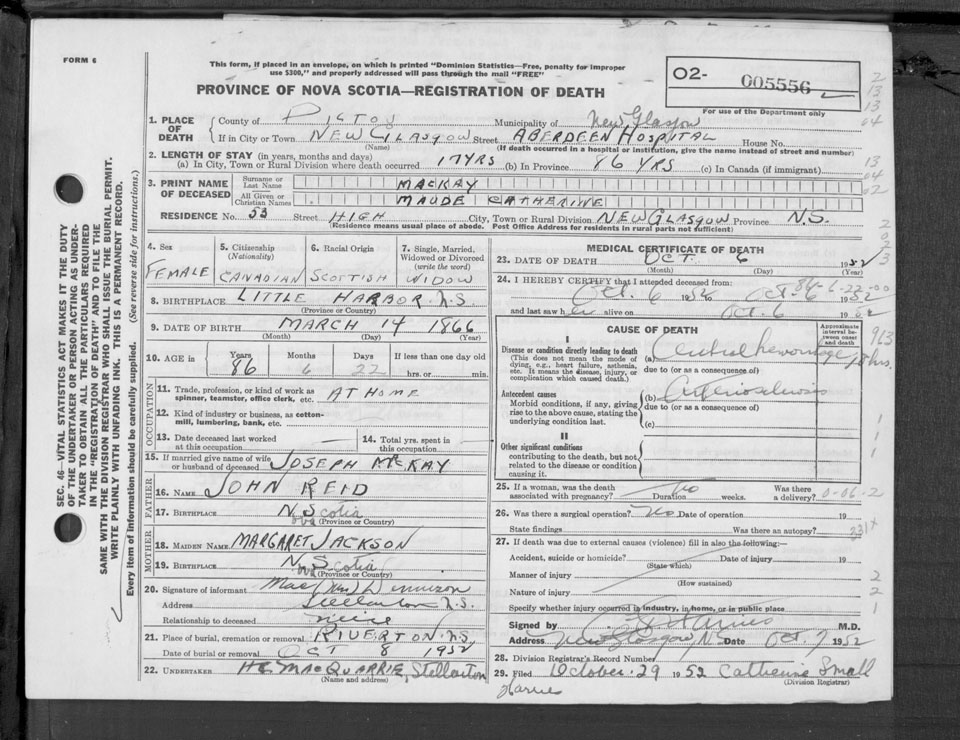 FORM 6
This form, if placed in an envelope, on which is printed "Dominion Statistics—Free, penalty for improper
use $300," and properly addressed will pass through the mail "FREE"
PROVINCE OF NOVA SCOTIA—REGISTRATION OF DEATH
02- 005556
For use of the Department only
SEC. 46—VITAL STATISTICS ACT MAKES IT THE DUTY
OF THE UNDERTAKER OR PERSON ACTING AS UNDER-
TAKER TO OBTAIN ALL THE PARTICULARS REQUIRED
IN THE "REGISTRATION OF DEATH" AND TO FILE THE
SAME WITH THE DIVISION REGISTRAR WHO SHALL ISSUE THE BURIAL PERMIT.
WRITE PLAINLY WITH UNFADING INK. THIS IS A PERMANENT RECORD.
Every item of Information should be carefully supplied. (See reverse side for instructions.)
1. PLACE OF DEATH County of PICTOU Municipality of New Glasgow
If in City or Town NEW GLASGOW Street ABERDEEN HOSPITAL House No.
(Name) (If death occurred in a hospital or institution, give the name instead of street and number)
2. LENGTH OF STAY (in years, months and days)
(a) In City, Town or Rural Division where death occurred 17 YRS (b) In Province 86 YRS (c) In Canada (if immigrant)
3. PRINT NAME OF DECEASED Surname or Last Name MACKAY
All Given or Christian Names MAUDE CATHERINE
RESIDENCE No. 53 Street HIGH City, Town or Rural Division NEW GLASGOW Province N.S.
(Residence means usual place of abode. Post Office Address for residents in rural parts not sufficient)
4. Sex FEMALE
5. Citizenship (Nationality) CANADIAN
6. Racial Origin SCOTTISH
7. Single, Married, Widowed or Divorced (write the word) WIDOW
8. BIRTHPLACE LITTLE HARBOR N.S
(Province or Country)
9. DATE OF BIRTH MARCH 14 1866
(Month) (Day) (Year)
10. AGE in Years 86 Months 6 Days 22 If less than one day old hrs. or min.
OCCUPATION
11. Trade, profession, or kind of work as spinner, teamster, office clerk, etc. AT HOME
12. Kind of industry or business, as cotton-mill, lumbering, bank, etc.
13. Date deceased last worked at this occupation
14. Total yrs. spent in this occupation
15. If married give name of wife or husband of deceased JOSEPH MCKAY
FATHER
16. NAME JOHN REID
17. BIRTHPLACE N. Scotia
(Province or Country)
MOTHER
18. MAIDEN NAME MARGARET JACKSON
19. BIRTHPLACE N. Scotia
(Province or Country)
20. Signature of informant
Address Stellarton N.S.
Relationship to deceased niece
21. Place of burial, cremation or removal RIVERTON N.S
Date of burial or removal OCT 8 1952
22. UNDERTAKER H.C. MACQUARRIE, Stellarton
(Name and address)
MEDICAL CERTIFICATE OF DEATH
23. DATE OF DEATH OCT. 6 1952
(Month) (Day) (Year)
24. I HEREBY CERTIFY that I attended deceased from:
Oct. 6 1952 to Oct. 6 1952
and last saw her alive on Oct. 6 1952
86-6-22-00
CAUSE OF DEATH
Approximate interval between onset and death
I
Disease or condition directly leading to death
(This does not mean the mode of dying, e.g., heart failure, asthenia, etc. It means the disease, injury, or complication which caused death.)
(a) Cerebral hemorrhage 18 hrs.
due to (or as a consequence of)
Antecedent causes
Morbid conditions, if any, giving rise to the above cause, stating the underlying condition last.
(b) Arteriosclerosis
due to (or as a consequence of)
(c)
II
Other significant conditions
contributing to the death, but not related to the disease or condition causing it.
25. If a woman, was the death associated with pregnancy? No Duration weeks. Was there a delivery?
26. Was there a surgical operation? No Date of operation 19
State findings Was there an autopsy?
27. If death was due to external causes (violence) fill in also the following:—
Accident, suicide or homicide? Date of injury 19
(State which)
Manner of injury
(How sustained)
Nature of injury
Specify whether injury occurred in industry, in home, or in public place
Signed by M.D.
Address New Glasgow, N.S. Date Oct. 7 1952
28. Division Registrar's Record Number
29. Filed October 29 1952 Catherine Small
(Division Registrar)